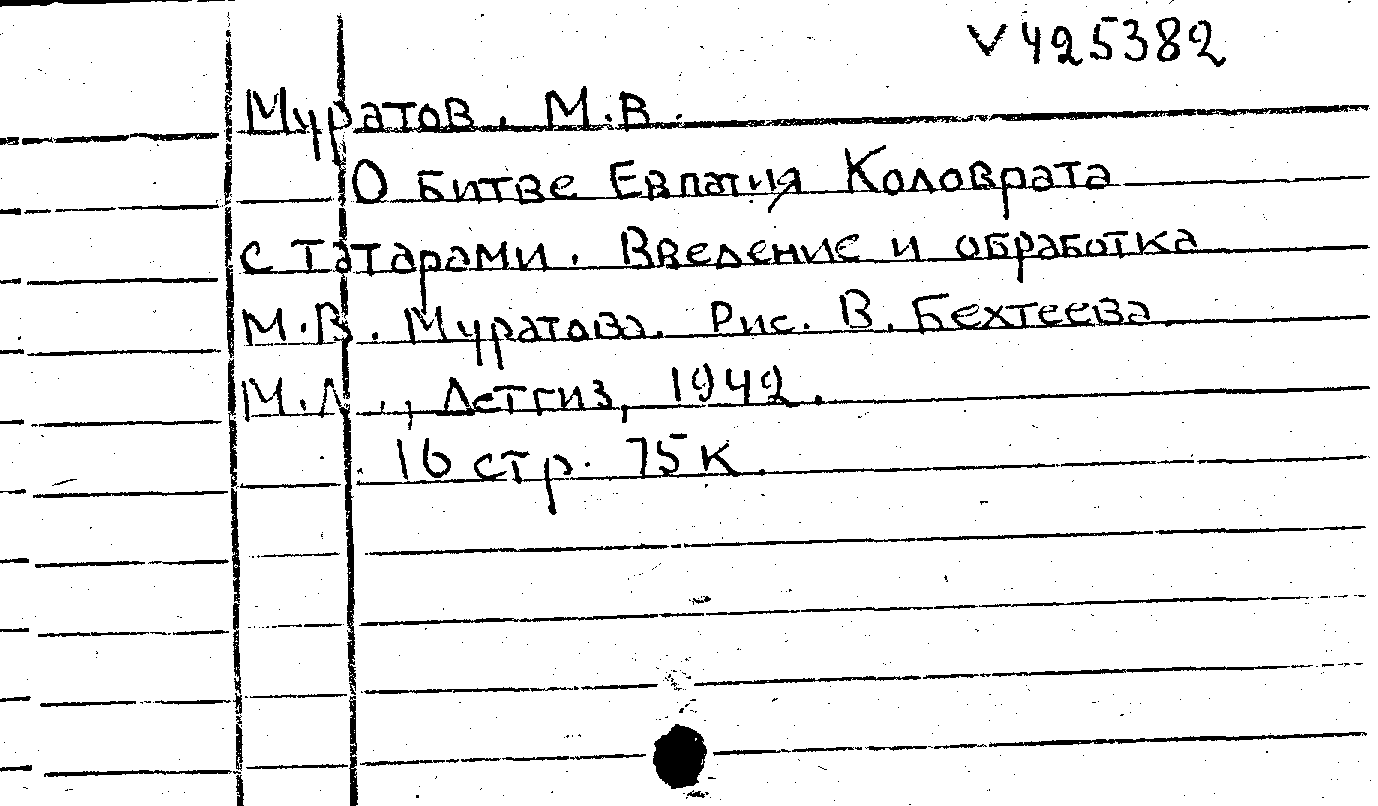 V 425382
Муратов. М.В.
О битве Евпатия Коловрата
с татарами. Введение и обработка
М.В. Муратова. Рис. В. Бехтеева
М.Л., Детгиз, 1942.
16 стр. 75 к.